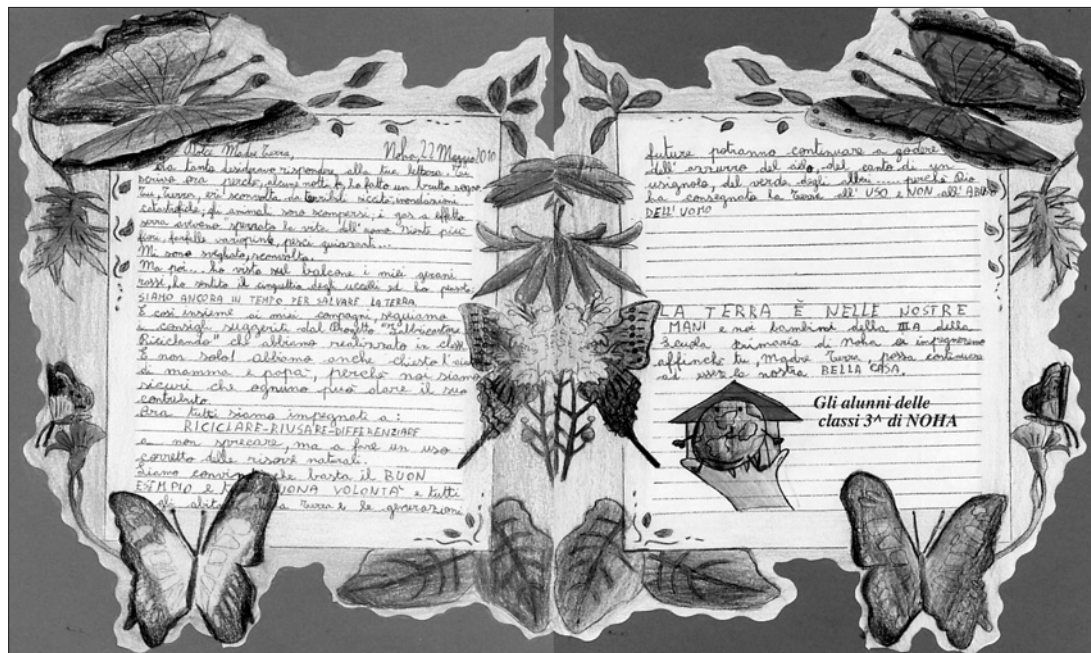 Noha, 22 Maggio 2010
Madre Terra,
Da tanto desideravo rispondere alla tua lettera. Ti
scrivo ora perchè, alcune notti fa, ho fatto un brutto sogno.
Tu, Terra, eri sconvolta da terribili siccità, inondazioni
catastrofiche; gli animali sono scomparsi; i gas a effetto
serra avevano spezzato la vita dell'uomo. Niente più
fiori, farfalle variopinte, pesci guizzanti...
Mi sono svegliata, sconvolta.
Ma poi... ho visto sul balcone i miei gerani
rossi, ho sentito il cinguettio degli uccelli ed ho pensato:
SIAMO ANCORA IN TEMPO PER SALVARE LA TERRA.
E così insieme ai miei compagni, seguiamo
i consigli suggeriti dal Progetto "Fabbricastorie
Riciclando" che abbiamo realizzato in classe.
E non solo! Abbiamo anche chiesto l'aiuto
di mamma e papà, perchè noi siamo
sicuri che ognuno può dare il suo
contributo.
Ora tutti siamo impegnati a:
RICICLARE-RIUSARE-DIFFERENZIARE
a non sprecare, ma a fare un uso
corretto delle risorse naturali.
Siamo convinti che basta il BUON
ESEMPIO e BUONA VOLONTÀ e tutti
gli Terra e le generazioni
future potranno continuare a godere
dell'azzurro del cielo, del canto di un
usignolo, del verde degli alberi..... perchè Dio
ha consegnato la Terra all'USO e NON all'ABUSO
DELL'UOMO
LA TERRA È NELLE NOSTRE
MANI e noi bambini della IIIA della
Scuola Primaria di Noha ci impegneremo
affinchè tu, Madre Terra, possa continuare
ad essere la nostra BELLA CASA.
Gli alunni delle
classi 3^ di NOHA